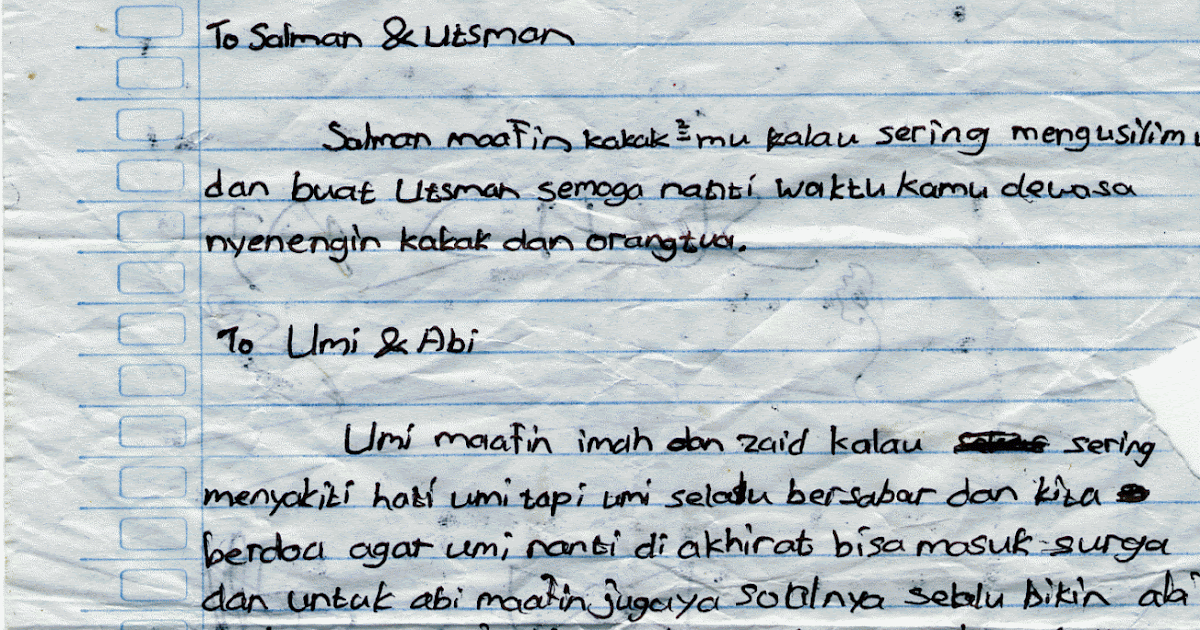 To Salman & Utsman
Salman maafin kakak²mu kalau sering mengusilimu
dan buat Utsman semoga nanti waktu kamu dewasa
nyenengin kakak dan orangtua.
To Umi & Abi
Umi maafin imah dan zaid kalau sering
menyakiti hati umi tapi umi selalu bersabar dan kita
berdoa agar umi nanti di akhirat bisa masuk surga
dan untuk abi maafin jugaya soalnya selalu bikin abi